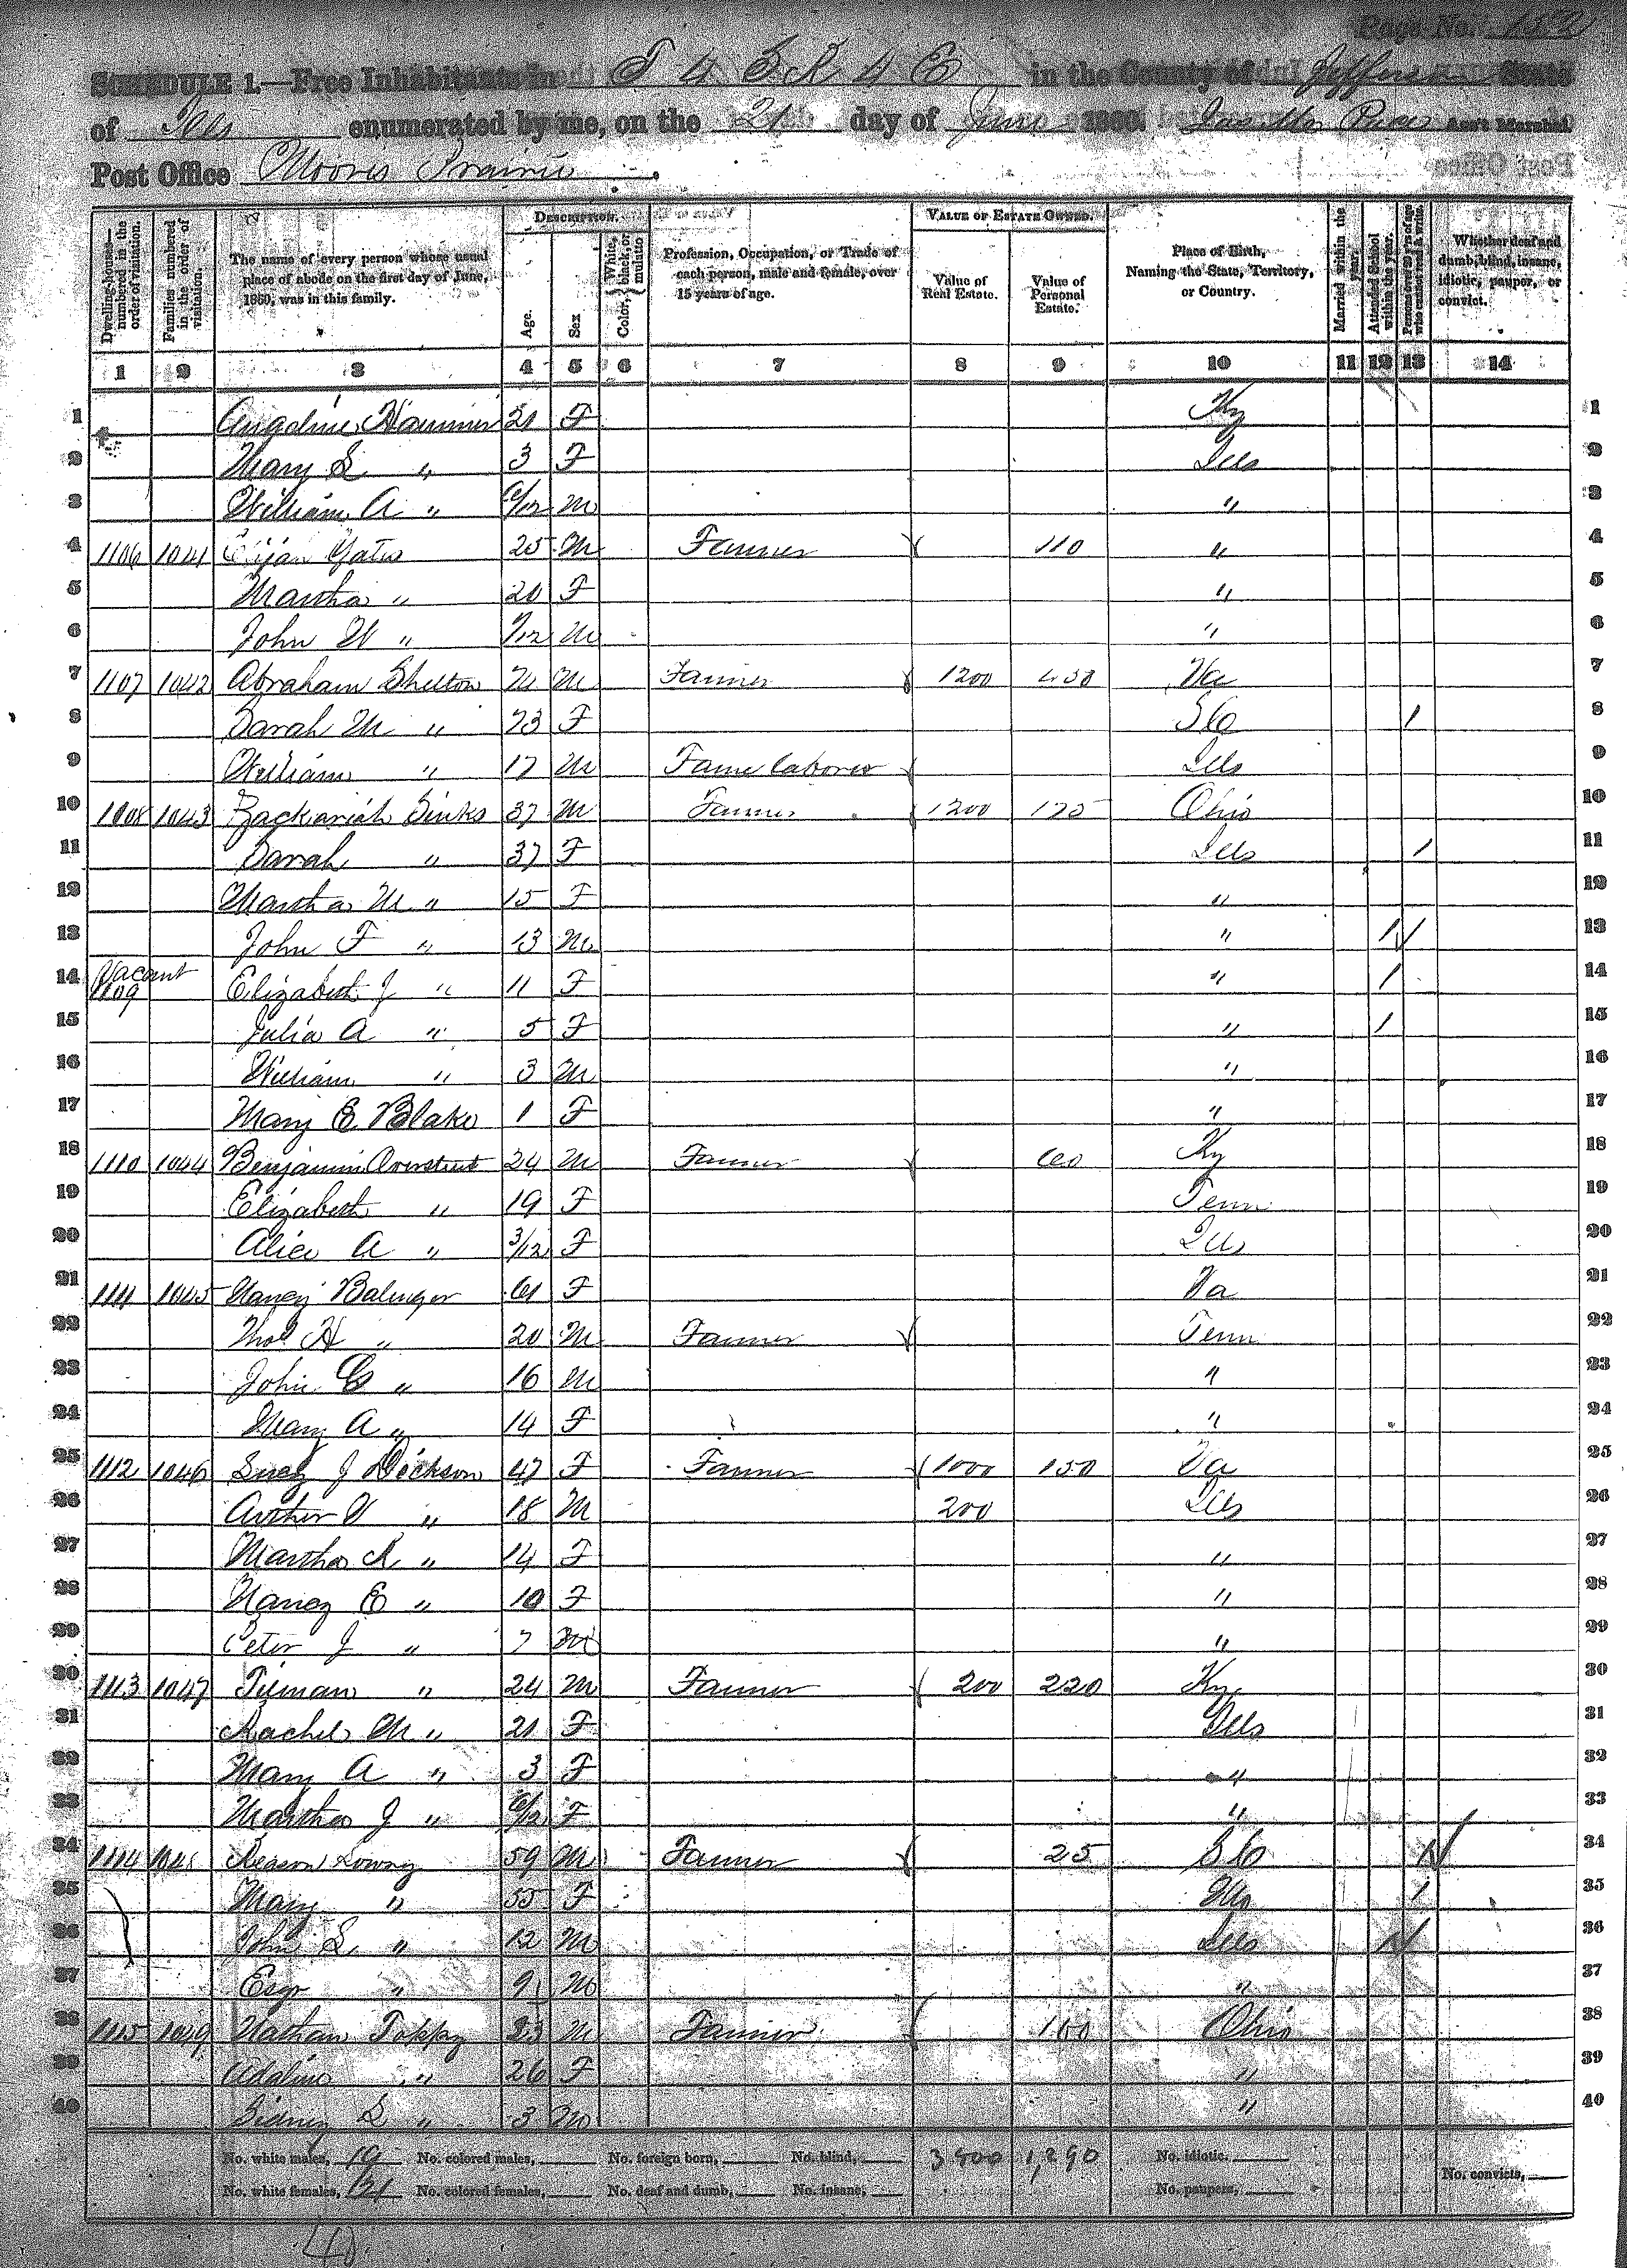 Page No. 152
SCHEDULE 1.—Free Inhabitants in T 4 S R 4 E in the County of Jefferson State
of Ills enumerated by me, on the 21 day of June 1860. Ass't Marshal.
Post Office Moores Prairie
Dwelling-houses—numbered in the order of visitation.
Families numbered in the order of visitation.
The name of every person whose usual place of abode on the first day of June, 1860, was in this family.
DESCRIPTION.
Age.
Sex
Color, { White, black, or mulatto
Profession, Occupation, or Trade of each person, male and female, over 15 years of age.
VALUE OF ESTATE OWNED.
Value of Real Estate.
Value of Personal Estate.
Place of Birth, Naming the State, Territory, or Country.
Married within the year.
Attended School within the year.
Persons over 20 y'rs of age who cannot read & write.
Whether deaf and dumb, blind, insane, idiotic, pauper, or convict.
1 2 3 4 5 6 7 8 9 10 11 12 13 14
1 21 F Ky 1
2 Mary S " 3 F Ills 2
3 William A " 6/12 M " 3
4 1106 1041 Yates 25 M Farmer 110 " 4
5 Martha " 20 F " 5
6 John W " 7/12 M " 6
7 1107 1042 Abraham Shelton M Farmer 1200 Va 7
8 Sarah M " 73 F S C 1 8
9 William " 17 M Farm laborer Ills 9
10 1108 1043 Zackariah Sinks 37 M Farmer 1200 125 Ohio 10
11 Sarah " 37 F Ills 1 11
12 Martha M " 15 F " 12
13 John F " 13 M " 1 13
14 Vacant 1109 Elizabeth J " 11 F " 1 14
15 Julia A " 5 F " 1 15
16 William " 3 M " 16
17 Mary E Blake 1 F " 17
18 1110 1044 Benjamin Overstreet 24 M Farmer 60 Ky 18
19 Elizabeth " 19 F Tenn 19
20 Alice A " 3/12 F Ills 20
21 1111 1045 Nancy Balinger 61 F Va 21
22 Thos H " 20 M Farmer Tenn 22
23 John C " 16 M " 23
24 Mary A " 14 F " 24
25 1112 1046 Lucy J Dickson 47 F Farmer 1000 150 Va 25
26 " 18 M 200 Ills 26
27 Martha A " 14 F " 27
28 Nancy E " 10 F " 28
29 Peter J " 7 M " 29
30 1113 1047 " 24 M Farmer 200 220 Ky 30
31 Rachel M " 21 F Ills 31
32 Mary A " 3 F " 32
33 Martha J " 6/12 F " 33
34 1114 1048 Reason Lowry 59 M Farmer 25 S C 1 34
35 Mary " 55 F 1 35
36 John S " 12 M Ills 1 36
37 Esqr " 9 M " 37
38 1115 1049 Nathan Toppy 23 M Farmer 100 Ohio 38
39 Adaline " 26 F " 39
40 Sidney S " 3 M " 40
No. white males, 19 No. colored males, No. foreign born, No. blind, 3800 1,290 No. idiotic.
No. white females, 21 No. colored females, No. deaf and dumb, No. insane, No. paupers, No. convicts,
40